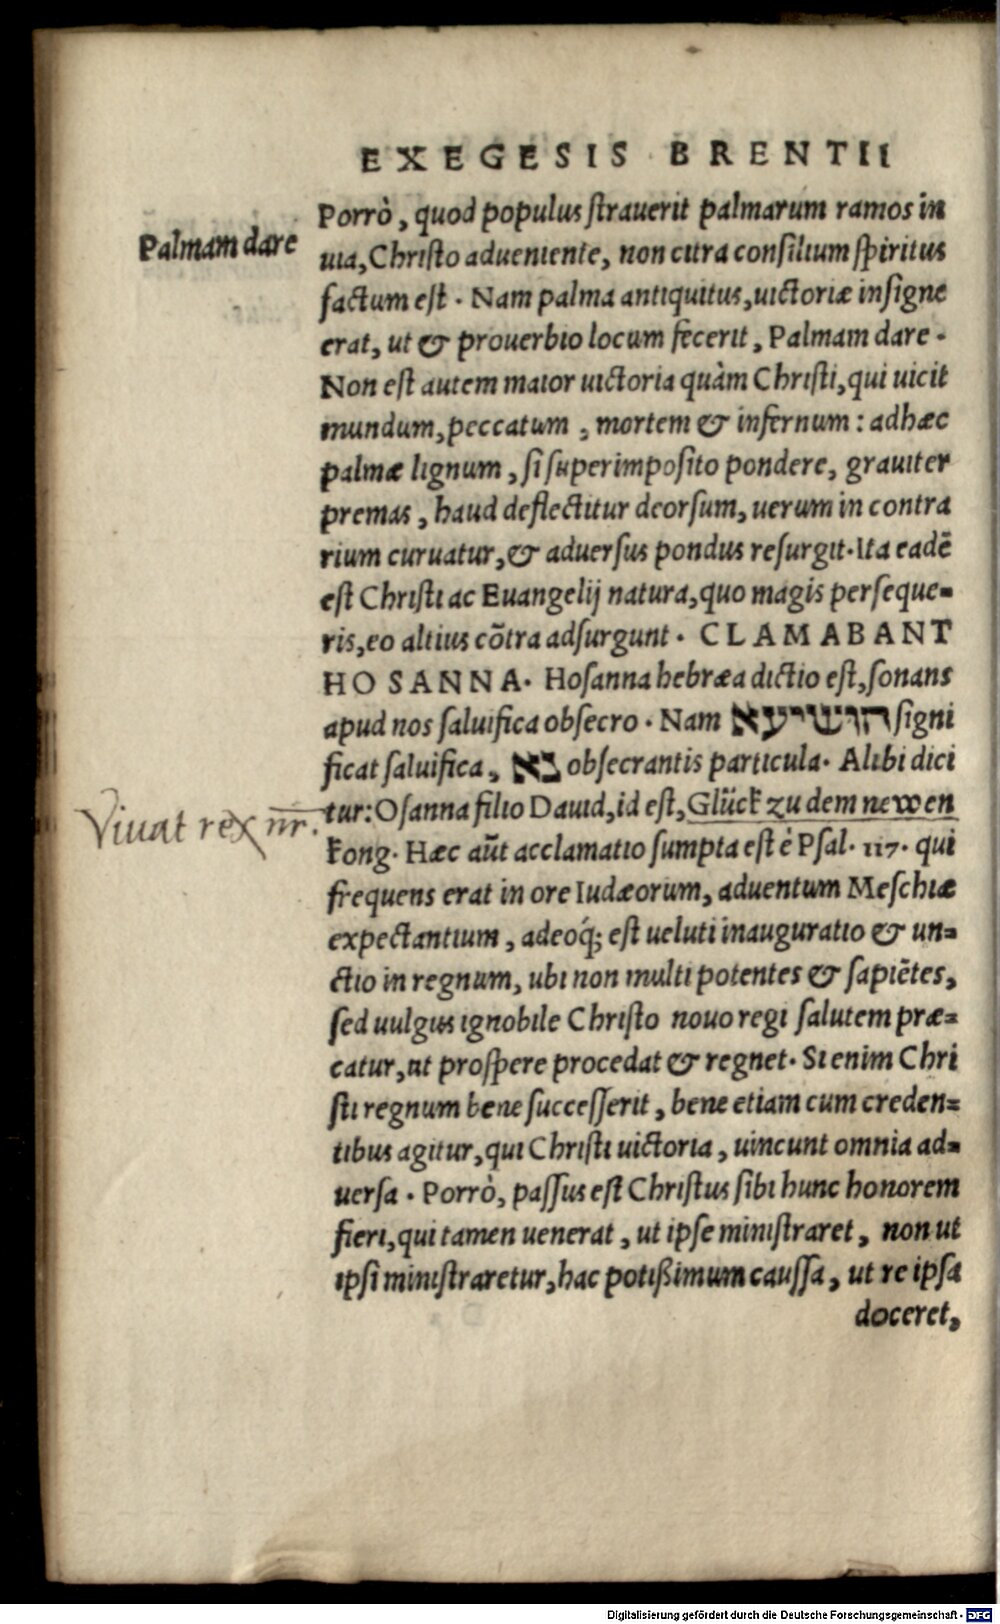 EXEGESIS BRENTII
Porrò, quod populus strauerit palmarum ramos in
Palmam dare
uia, Christo adueniente, non citra consilium spiritus
factum est. Nam palma antiquitus, uictoriæ insigne
erat, ut & prouerbio locum fecerit, Palmam dare.
Non est autem maior uictoria quàm Christi, qui uicit
mundum, peccatum, mortem & infernum: adhæc
palmæ lignum, si superimposito pondere, grauiter
premas, haud deflectitur deorsum, uerum in contra
rium curuatur, & aduersus pondus resurgit. Ita eadē
est Christi ac Euangelij natura, quo magis perseque=
ris, eo altius cōtra adsurgunt. CLAMABANT
HOSANNA. Hosanna hebræa dictio est, sonans
apud nos saluifica obsecro. Nam הושיעא signi
ficat saluifica, נא obsecrantis particula. Alibi dici
tur: Osanna filio Dauid, id est, Glück zu dem newen
Viuat rex nr̄.
kong. Hæc aūt acclamatio sumpta est è Psal. 117. qui
frequens erat in ore Iudæorum, aduentum Meschiæ
expectantium, adeoq́; est ueluti inauguratio & un=
ctio in regnum, ubi non multi potentes & sapiētes,
sed uulgus ignobile Christo nouo regi salutem præ=
catur, ut prospere procedat & regnet. Si enim Chri
sti regnum bene successerit, bene etiam cum creden=
tibus agitur, qui Christi uictoria, uincunt omnia ad=
uersa. Porrò, passus est Christus sibi hunc honorem
fieri, qui tamen uenerat, ut ipse ministraret, non ut
ipsi ministraretur, hac potißimum caussa, ut re ipsa
doceret,
Digitalisierung gefördert durch die Deutsche Forschungsgemeinschaft - DFG